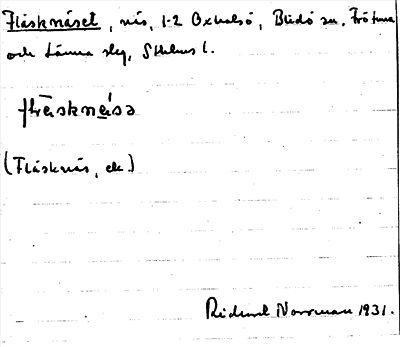 Fläsknäset, näs, 1-2 Oxhalsö, Blidö sn, Frötuna
och Länna slg, Sthlms l.
fläsknǟsə
(Fläsknäs, ek.)
Rickard Norrman 1931.